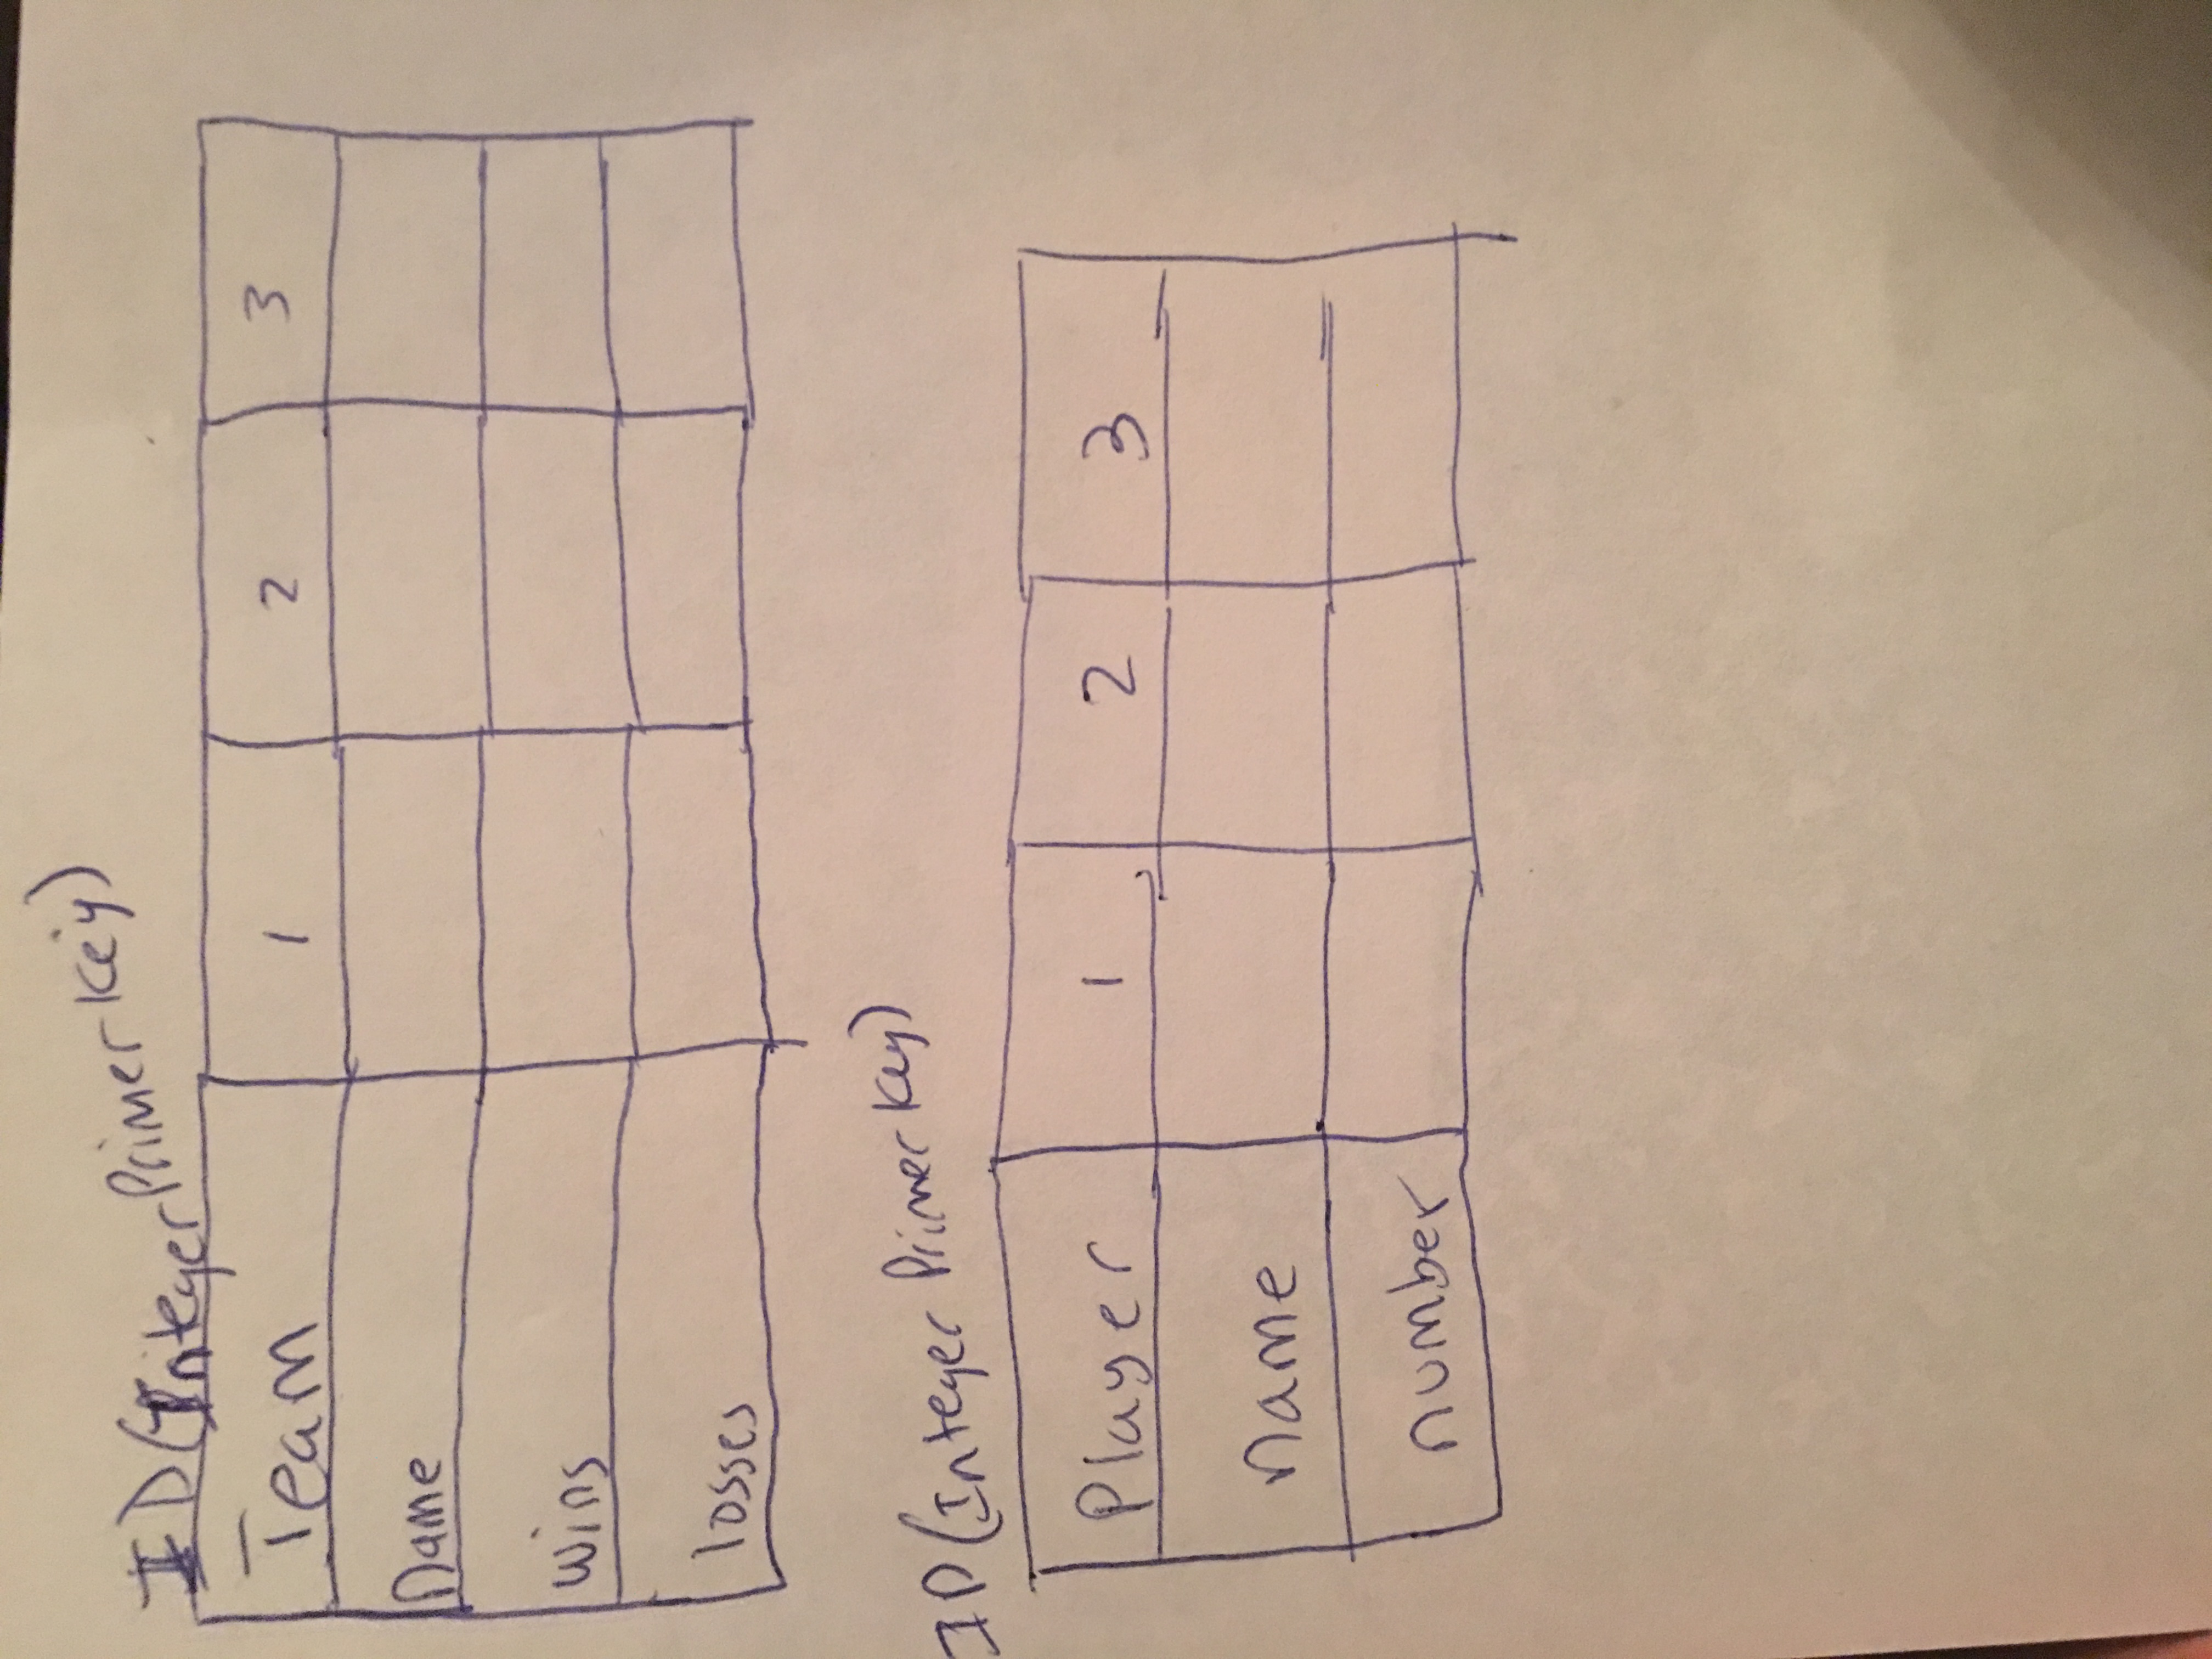 ID (Integer Primer Key)
Team 1 2 3
Name
wins
losses
ID (Integer Primer Key)
Player 1 2 3
name
number